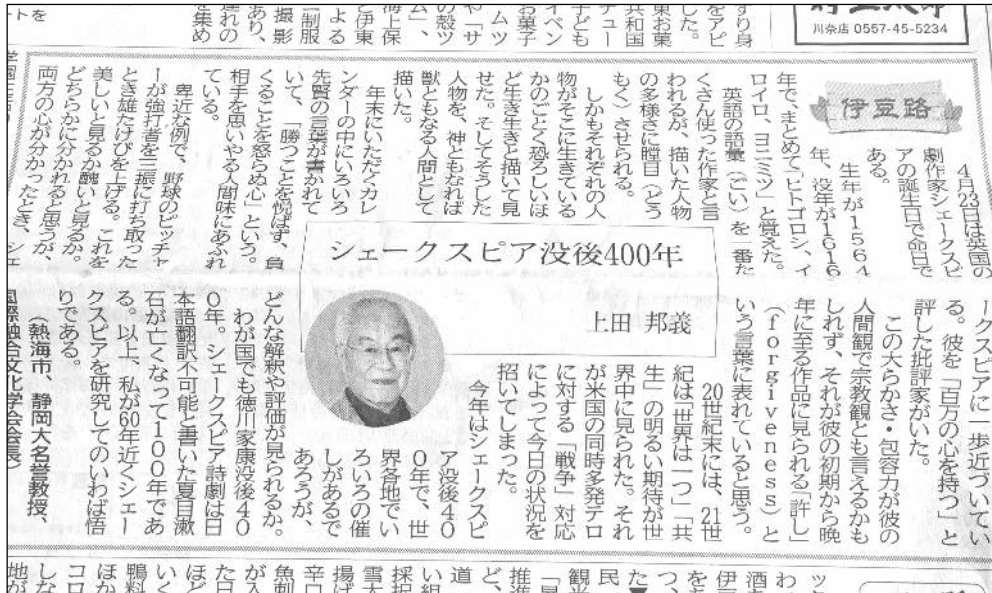 川奈店 0557-45-5234
すり身
をアピ
した。
共和国
チュー
子ども
イベン
お菓子
ムツ
や「サ
の殻ツ
ム」、
海上保
と伊東
による
一制服
撮影
あり、
連れの
を集め
ートを
伊豆路
シェークスピア没後400年
上田 邦義
４月23日は英国の
劇作家シェークスピ
アの誕生日で命日で
ある。
生年が１５６４
年、没年が１６１６
年で、まとめて「ヒトゴロシ、イ
ロイロ、ヨミニミツ」と覚えた。
英語の語彙（ごい）を一番た
くさん使った作家と言
われるが、描いた人物
の多様さに瞠目（どう
もく）させられる。
しかもそれぞれの人
物がそこに生きている
かのごとく恐ろしいほ
ど生き生きと描いて見
せた。そしてそうした
人物を、神ともなれば
獣ともなる人間として
描いた。
年末にいただくカレ
ンダーの中にいろいろ
先賢の言葉が書かれて
いて、「勝つことを悦ばず、負
くることを怒らぬ心」という。
相手を思いやる人間味にあふれ
ている。
卑近な例で、野球のピッチャ
ーが強打者を三振に打ち取った
とき雄たけびを上げる。これを
美しいと見るか醜いと見るか。
どちらかに分かれると思うが、
両方の心が分かったとき、シェ
ークスピアに一歩近づいてい
る。彼を「百万の心を持つ」と
評した批評家がいた。
この大らかさ・包容力が彼の
人間観で宗教観とも言えるかも
しれず、それが彼の初期から晩
年に至る作品に見られる「許し」
（forgiveness）と
いう言葉に表れていると思う。
20世紀末には、21世
紀は「世界は一つ」「共
生」の明るい期待が世
界中に見られた。それ
が米国の同時多発テロ
に対する「戦争」対応
によって今日の状況を
招いてしまった。
今年はシェークスピ
ア没後４０
０年で、世
界各地でい
ろいろの催
しがあるで
あろうが、
どんな解釈や評価が見られるか。
わが国でも徳川家康没後４０
０年。シェークスピア詩劇は日
本語翻訳不可能と書いた夏目漱
石が亡くなって１００年であ
る。以上、私が60年近くシェー
クスピアを研究してのいわば悟
りである。
熱海市、静岡大名誉教授、
国際融合文化学会会長）